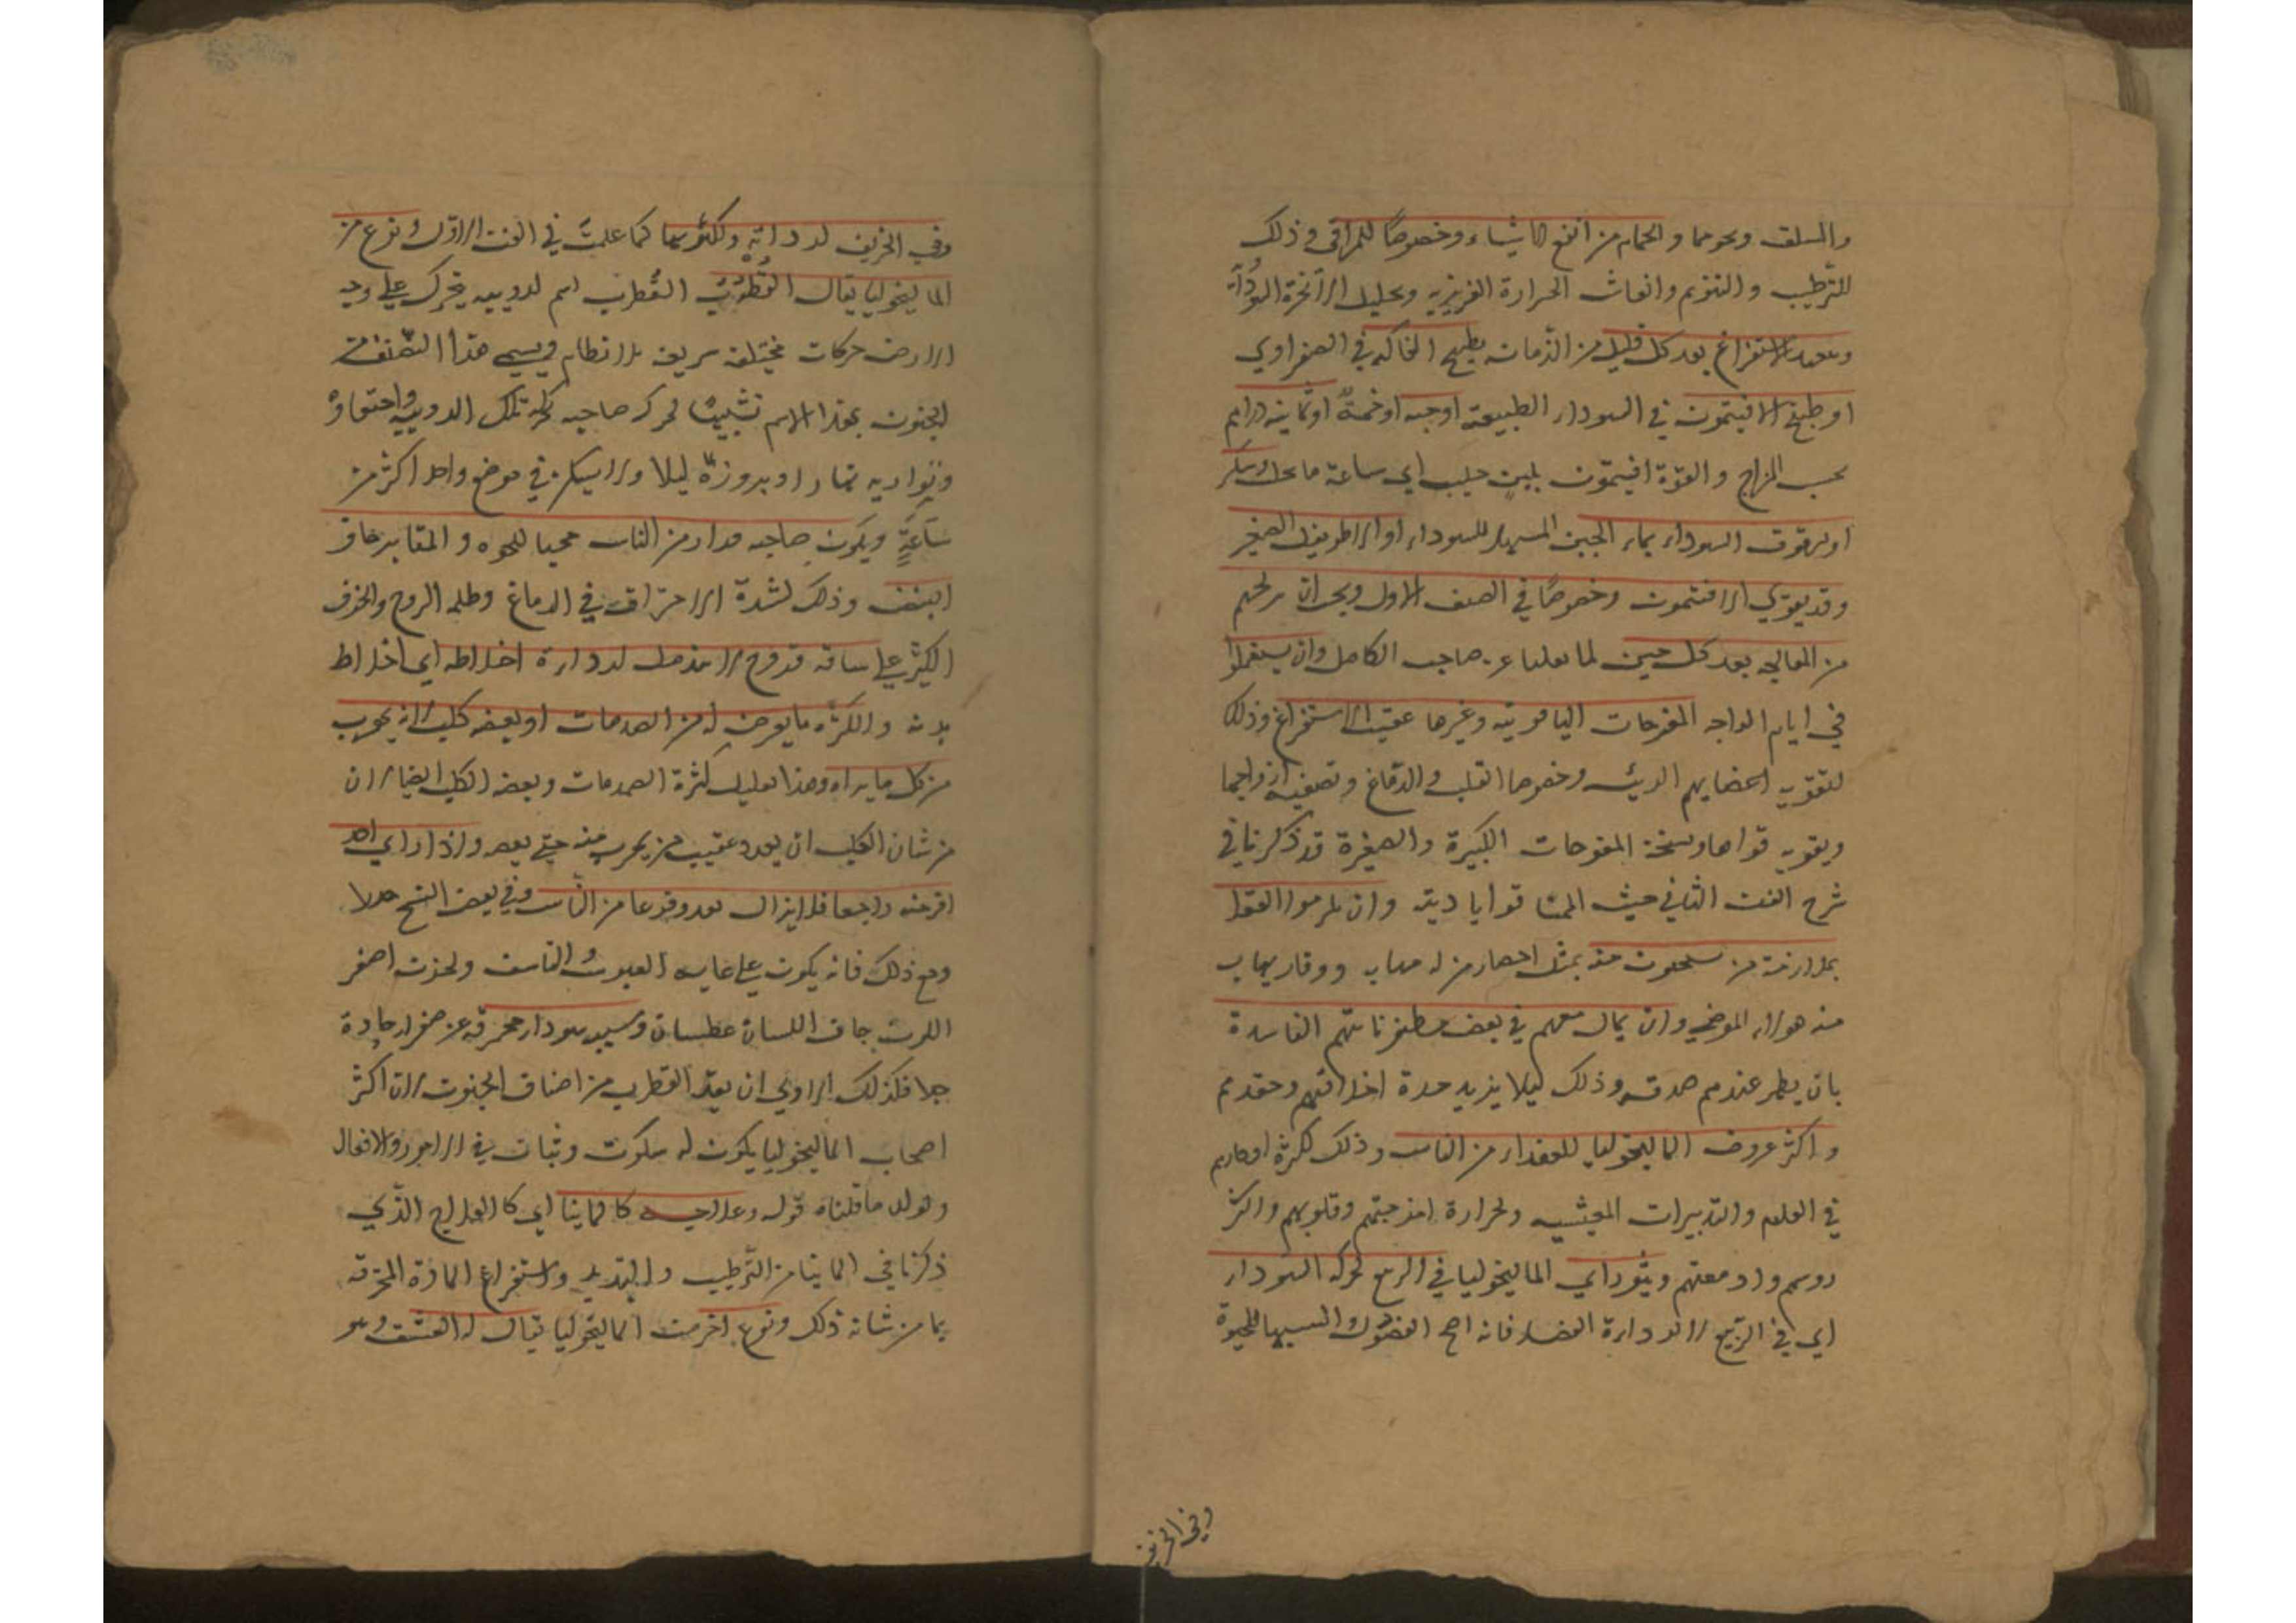 والسلق ونحوهما والحمام من انفع الاشياء وخصوصًا للمراقى وذلك
للترطيب والتنويم وانعاش الحرارة الغريزيه وتحليل الابخرة السوداء
الاستفراغ بعد كل قليل من الزمان بطبيخ الفاكه في الصفراوي
او طبيخ الافيتمون في السوداء الطبيعة اوجبه او خمسة او ثمانيه دراهم
بحسب المزاج والقوة افيتمون بلبن حليب اي ساعة ما يحلب وسكر
او يرقون السوداء بماء الجبن المسهل للسوداء او الاطريفل الصغير
وقد يقوي الافتيمون وخصوصًا في الصنف الاول ويجب ان يريحهم
من المعالجه بعد كل حين لما نقلنا عن صاحب الكامل وان يستعملوا
في ايام الراحه المفرحات الياقوتيه وغيرها عقيب الاستفراغ وذلك
لتقويه اعضايهم الرئيسه وخصوصا القلب والدماغ وتصفيه ارواحها
وتقويه قواها ونسخة المفرحات الكبيرة والصغيرة قد ذكرنا في
شرح الفن الثاني حيث وان يلزموا العقلا
بملازمة من يستحيون منه بمثل احضار من له مهابه ووقار يهاب
منه هولاء المرضي وان يمال معهم في بعض ظنوناتهم الفاسدة
بان يظهر عندهم صدقه وذلك ليلا يزيد حدة اخلاقهم وحقدهم
واكثر عروض الماليخوليا للعقلاء من الناس وذلك لكثرة افكارهم
في العلوم والتدبيرات المعيشيه ولحرارة امزجتهم وقلوبهم واكثر
روسهم وادمغتهم ويثور اي الماليخوليا في الربيع لحركه السوداء
اي في الربيع لا لرداءة الفصل فانه اصح الفصول وانسبها للحيوة
وفي الخريف
وفي الخريف لرداءته ولكثرتها كما علمت في الفن الاول ونوع من
الماليخوليا يقال القطرب القطرب اسم لدويبه يتحرك علي وجه
الارض حركات مختلفة سريعه بلا نظام ويسمي هذا الصنف من
الجنون بهذا الاسم تشبيهًا لحركه صاحبه بحركه تلك الدويبه واختفاؤه
وتواريه نهارا وبروزه ليلا ولا يسكن في موضع واحد اكثر من
ساعةٍ ويكون صاحبه فرارا من الناس محبا للخلوه والمقابر جاف
البصر وذلك لشدة الاحتراق في الدماغ وظلمه الروح والخوف
الكثير علي ساقه قروح لا تندمل لرداءة اخلاطه اي اخلاط
بدنه ولكثره ما يعرض له من الصدمات او يعضه كلب لانه يهرب
من كل ما يراه وهذا تعليل لكثرة الصدمات وبعضه الكلب ايضا لان
من شان الكلب ان يعدو عقيب من يهرب منه حتي يعضه واذا راي احد
افر عنه راجعا فلا يزال بعد وقوعا من الناس وفي بعض النسخ حذرا
ومع ذلك فانه يكون علي غايه العبوس والتاسف ولحزن اصفر
اللون جاف اللسان عطشان وسببه سوداء محترقه عن صفراء حادة
جدا فلذلك الاولي ان يعد القطرب من اصناف الجنون لان اكثر
اصحاب الماليخوليا يكون له سكوت وثبات في الامور والافعال
قوله وعلاجه كالمانيا اي كالعلاج الذي
ذكرنا في المانيا من الترطيب والتبديل واستفراغ المادة المحترقه
بما من شانه ذلك ونوع اخر من الماليخوليا يقال له العشق وهو